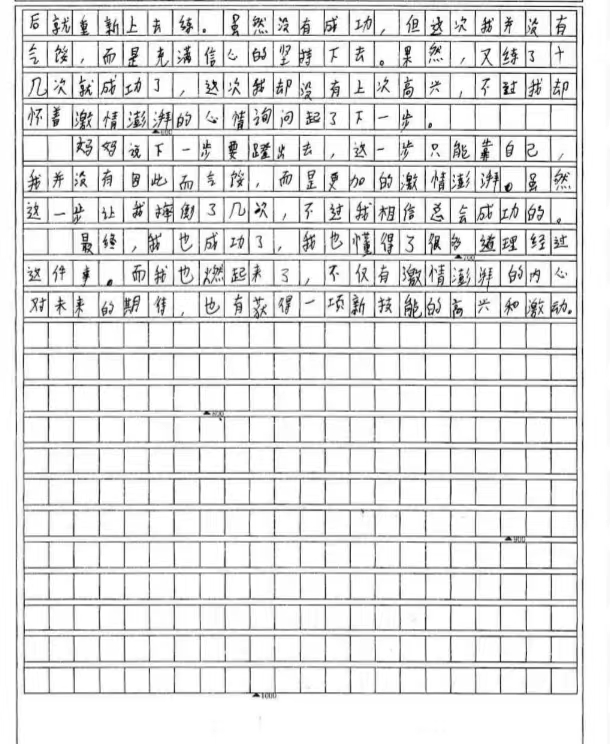 后就重新上去练。虽然没有成功，但这次我并没有
气馁，而是充满信心的坚持下去。果然，又练了十
几次就成功了，这次我却没有上次高兴，不过我却
怀着激情澎湃的心情询问起了下一步。
▲600
妈妈说下一步要蹬出去，这一步只能靠自己，
我并没有因此而气馁，而是更加的激情澎湃。虽然
这一步让我摔倒了几次，不过我相信总会成功的。
最终，我也成功了，我也懂得了很多道理经过
▲700
这件事。而我也燃起来了，不仅有激情澎湃的内心
对未来的期待，也有获得一项新技能的高兴和激动。
▲800
▲900
▲1000